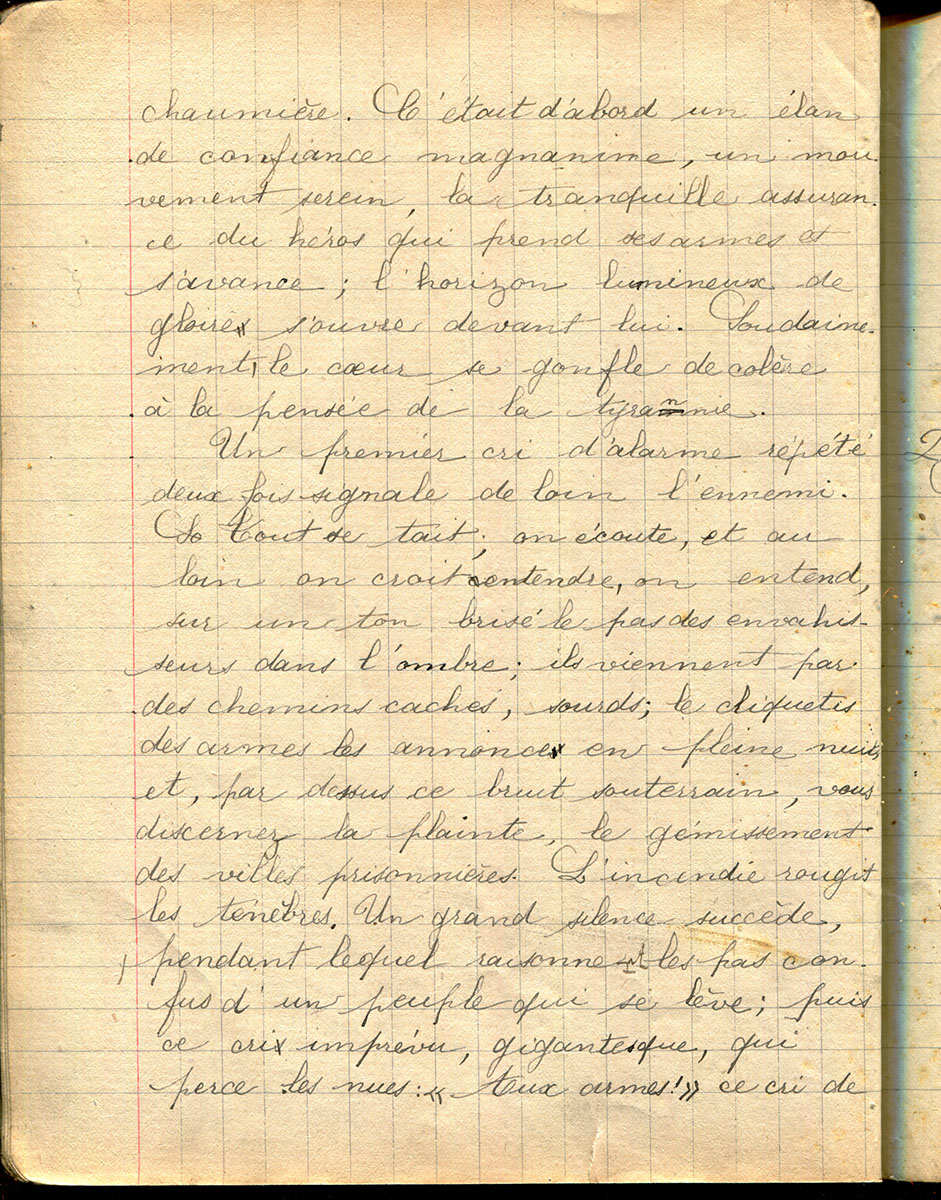 chaumière. C'était d'abord un élan
de confiance magnanime, un mou-
vement serein, la tranquille assuran-
ce du héros qui prend ses armes et
s'avance ; l'horizon lumineux de
gloire s'ouvre devant lui. Soudaine-
ment, le cœur se gonfle de colère
à la pensée de la tyrannie.
Un premier cri d'alarme répété
deux fois signale de loin l'ennemi.
So Tout se tait ; on écoute, et au
loin on croit entendre, on entend,
sur un ton brisé le pas des envahis-
seurs dans l'ombre ; ils viennent par
des chemins cachés, sourds ; le cliquetis
des armes les annonce en pleine nuit,
et, par dessus ce bruit souterrain, vous
discernez la plainte, le gémissement
des villes prisonnières. L'incendie rougit
les ténèbres. Un grand silence succède,
pendant lequel raisonne nt les pas con-
fus d'un peuple qui se lève ; puis
ce cri imprévu, gigantesque, qui
perce les nues : « Aux armes ! » ce cri de